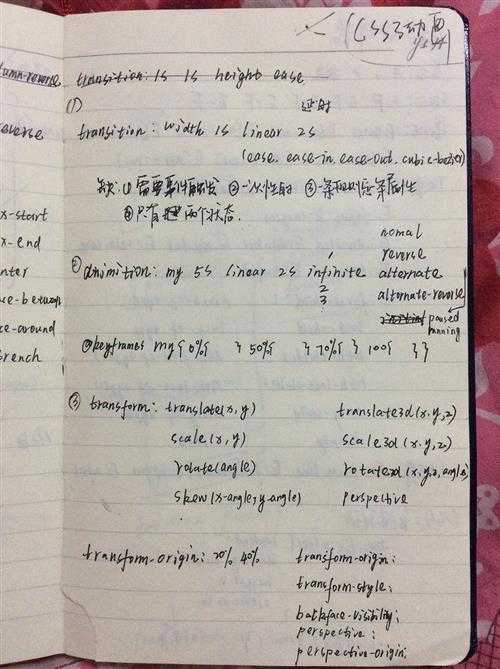 CSS3动画
umn-reverse
everse
x-start
x-end
nter
ce-between
ce-around
trench
transition: 1s 1s height ease
(1)
延时
transition: width 1s linear 2s
(ease. ease-in. ease-out. cubic-bezier)
缺: ① 需要事件触发 ② 一次性的 ③ 一条规则 一条属性
④ 只有 两个状态.
② animition: my 5s linear 2s infinite
1
2
3
nomal
reverse
alternate
alternate-reverse
paused
running
@keyframes my { 0%{ } 50%{ } 70%{ } 100{ } }
③ transform: translate(x,y) translate3d(x.y,z)
scale(x,y) scale3d(x.y,z)
rotate(angle) rotate3d(x,y,z,angle)
skew(x-angle,y-angle) perspective
transform-origin: 20% 40% transform-origin:
transform-style:
backface-visibility:
perspective:
perspective-origin: